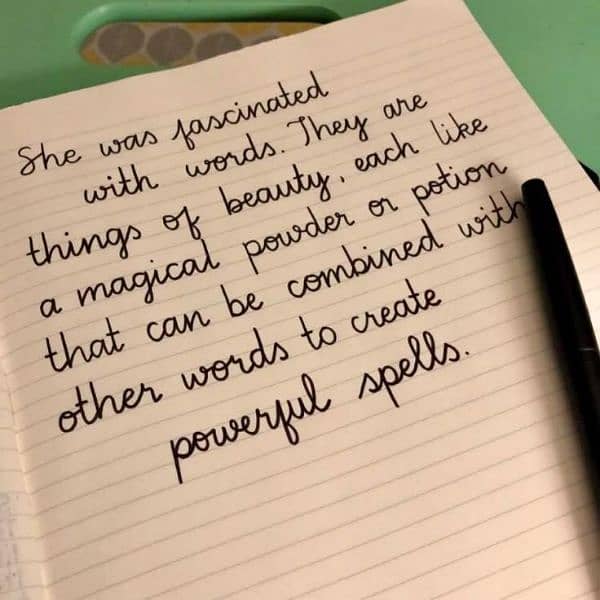 She was fascinated
with words. They are
things of beauty, each like
a magical powder or potion
that can be combined with
other words to create
powerful spells.